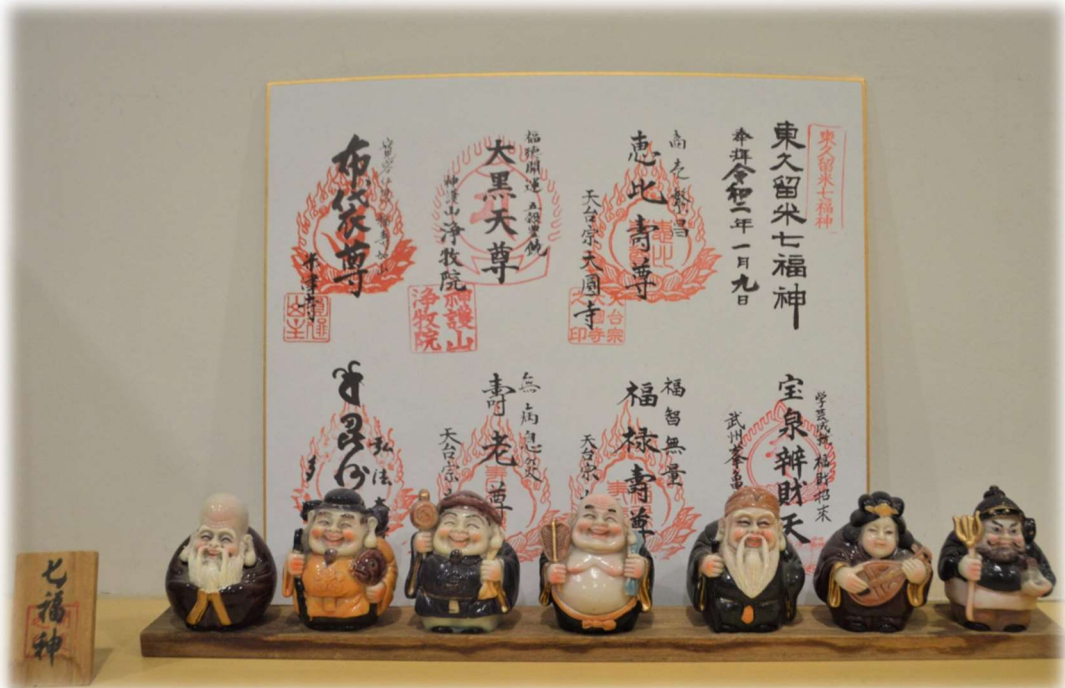 東久留米七福神
東久留米七福神
奉拝令和二年一月九日
商売繁昌
恵比寿尊
天台宗天國寺
天台宗
天國寺
之印
福徳開運五穀豊饒
大黒天尊
神護山浄牧院
神護山
浄牧院
布袋尊
学芸成就福財招来
宝泉辨財天
武州峯
福智無量
福禄寿尊
天台宗
無病息災
壽老尊
天台宗
弘法
七福神